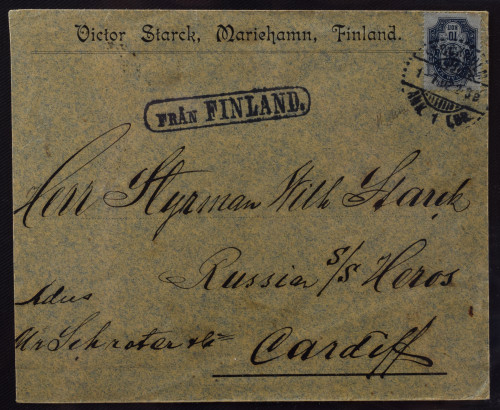 Victor Starck, Mariehamn, Finland.
FRÅN FINLAND.
Herr Styrman Wilh Starck
Russian S/S Heros
Adrs
Mr Schröter & Co
Cardiff